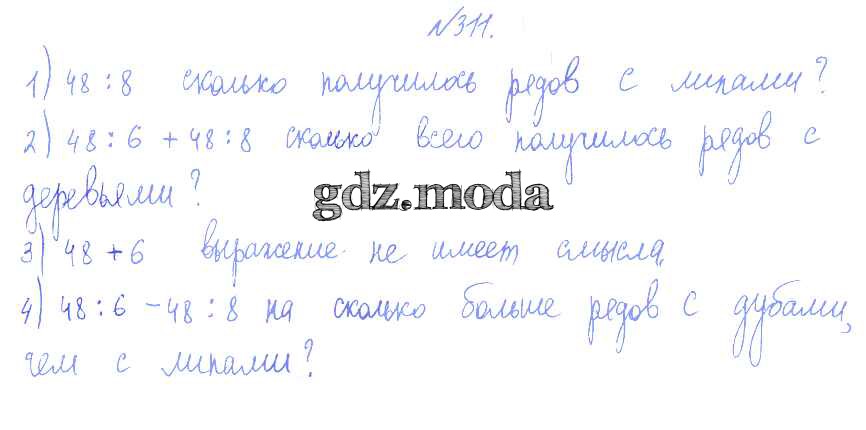 №311.
1) 48 : 8 сколько получилось рядов с липами?
2) 48 : 6 + 48 : 8 сколько всего получилось рядов с
деревьями?
gdz.moda
3) 48 + 6 выражение не имеет смысла.
4) 48 : 6 - 48 : 8 на сколько больше рядов с дубами,
чем с липами?